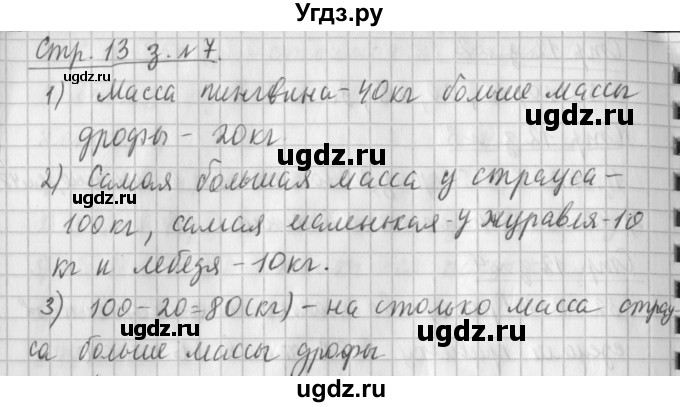 Угдз.ру
Стр. 13 з. № 7.
ugdz.ru
ugdz.ru
1) Масса пингвина - 40кг больше массы
дрофы - 20кг.
ugdz.ru
2) Самая большая масса у страуса -
ugdz.ru
100кг, самая маленькая - у журавля - 10
кг и лебедя - 10кг.
ugdz.ru
3) 100 - 20 = 80(кг) - на столько масса страу
ugdz.ru
са больше массы дрофы
ugdz.ru
ugdz.ru